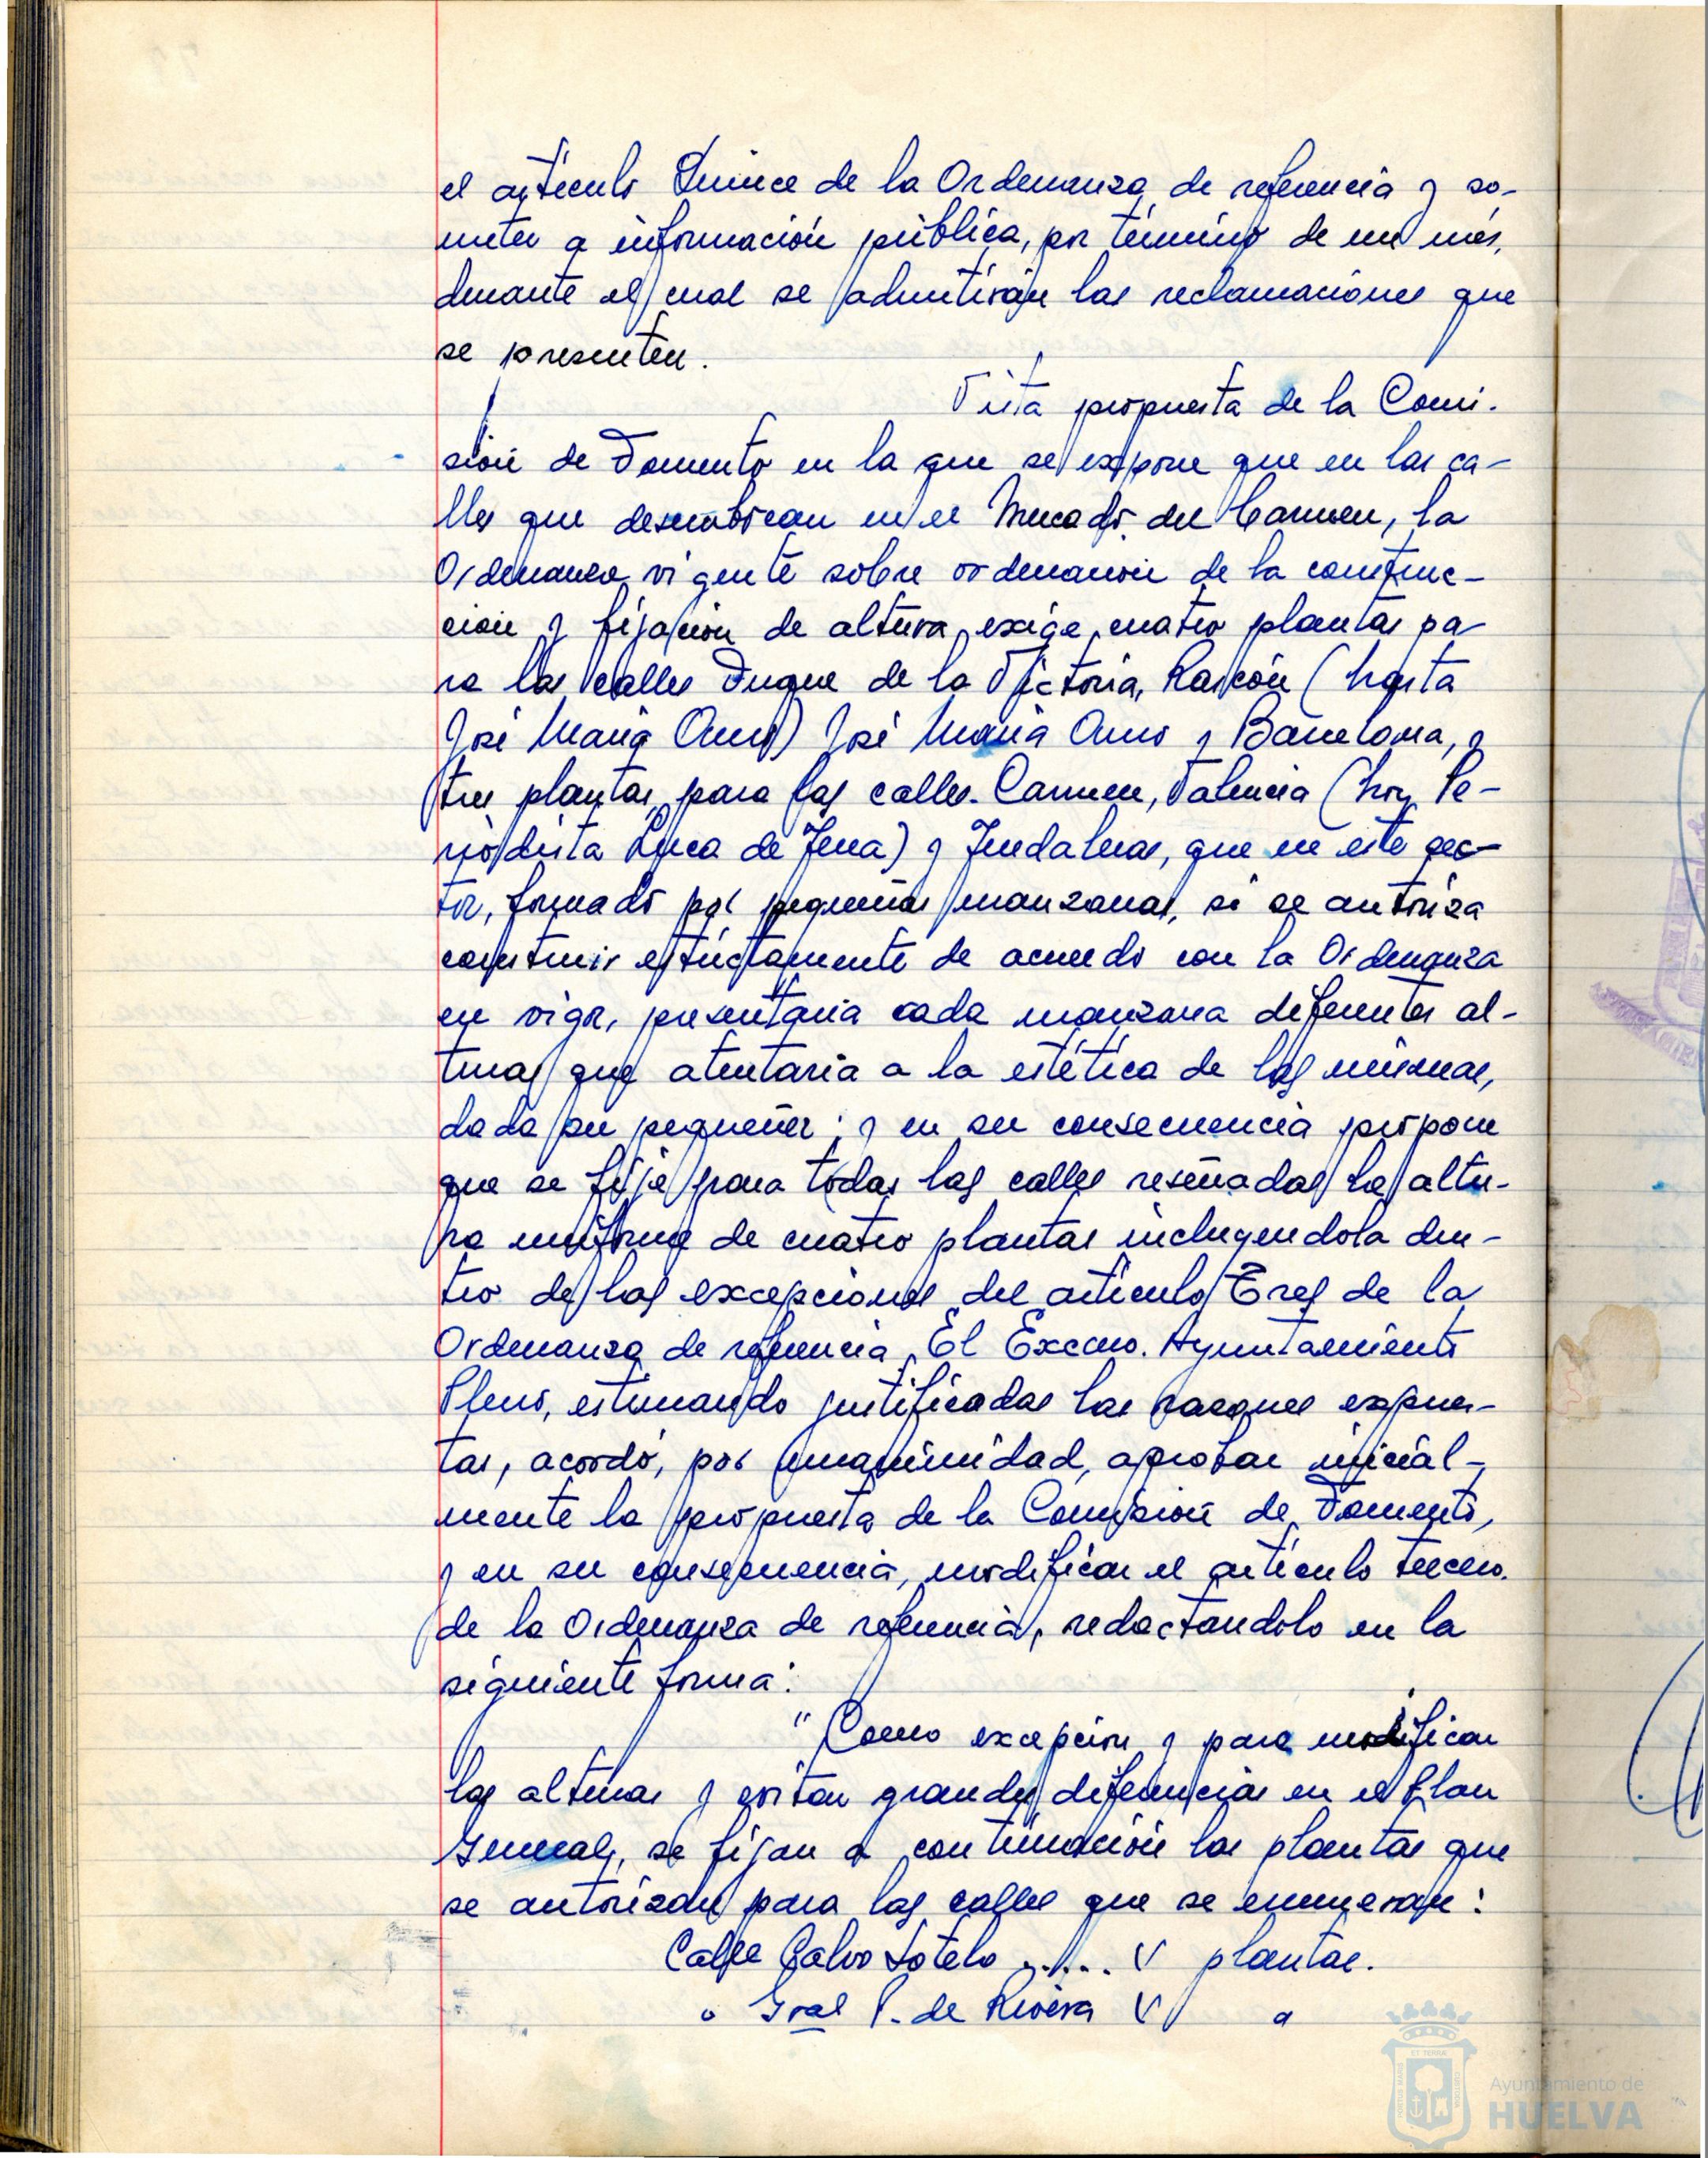 el artículo Quince de la Ordenanza de referencia y so-
meter a información pública, por término de un mes,
durante el cual se admitirán las reclamaciones que
se presenten.
Vista propuesta de la Comi-
sión de Fomento en la que se expone que en las ca-
lles que desembocan en el Mercado del Carmen, la
Ordenanza vigente sobre ordenación de la construc-
ción y fijación de altura, exige cuatro plantas pa-
ra las calles Duque de la Victoria, Rascón (hasta
José María Amo) José María Amo y Barcelona, y
tres plantas para las calles Carmen, Valencia (hoy Pe-
riodista Luca de Tena) y Tendaleras, que en este sec-
tor, formado por pequeñas manzanas, si se autoriza
construir estrictamente de acuerdo con la Ordenanza
en vigor, presentaria cada manzana diferentes al-
turas que atentaria a la estética de las mismas,
dada su pequeñez; y en su consecuencia propone
que se fije para todas las calles reseñadas la altu-
ra uniforme de cuatro plantas incluyendola den-
tro de las excepciones del artículo Tres de la
Ordenanza de referencia. El Excmo. Ayuntamiento
Pleno, estimando justificadas las razones expues-
tas, acordó, por unanimidad, aprobar inicial-
mente la propuesta de la Comisión de Fomento,
y en su consecuencia, modificar el artículo tercero
de la Ordenanza de referencia, redactandolo en la
siguiente forma:
"Como excepción y para modificar
las alturas y evitar grandes diferencias en el Plan
General, se fijan a continuación las plantas que
se autorizan para las calles que se enumeran:
Calle Calvo Sotelo ..... V plantas.
" Gral P. de Rivera V "
Ayuntamiento de
HUELVA